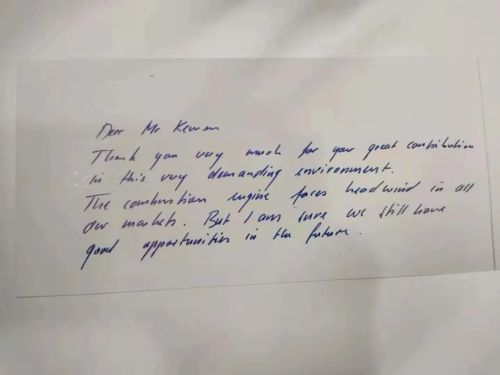 Dear Mr
Thank you very much for your great contribution
in this very demanding environment.
The combustion engine faces headwind in all
our markets. But I am sure we still have
good opportunities in the future.